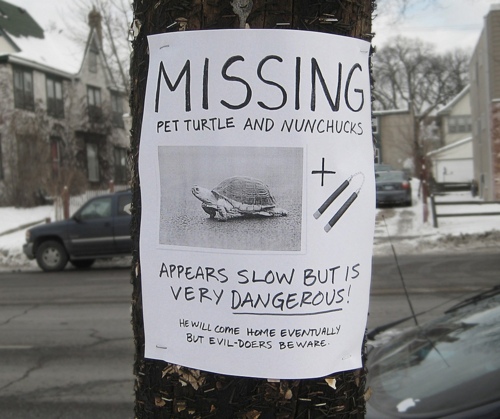 MISSING
PET TURTLE AND NUNCHUCKS
+
APPEARS SLOW BUT IS
VERY DANGEROUS!
HE WILL COME HOME EVENTUALLY
BUT EVIL-DOERS BEWARE.